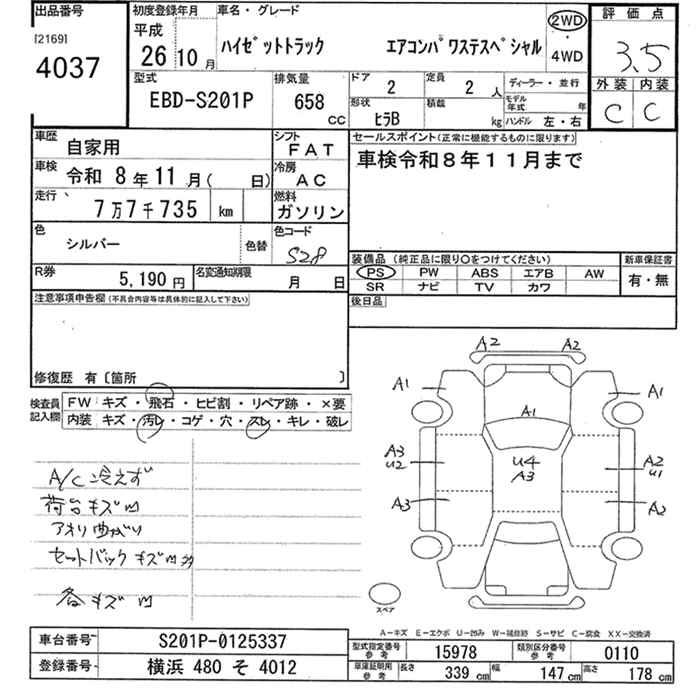 出品番号
[2169]
4037
初度登録年月
平成
26 10 月
車名・グレード
ハイゼットトラック エアコンパワステスペシャル
2WD
・
4WD
評価点
3.5
外装 内装
C C
型式
EBD-S201P
排気量
658
CC
ドア
2
定員
2 人
形状
ヒラB
積載
kg
ディーラー・並行
モデル年式 年
ハンドル 左・右
車歴
自家用
シフト
FAT
車検
令和 8年 11月( 日)
冷房
AC
走行
7万7千735 km
燃料
ガソリン
色
シルバー
色替
色コード
S28
R券
5,190円
名変通知期限
月 日
セールスポイント(正常に機能するものに限ります)
車検令和8年11月まで
装備品 (純正品に限り〇をつけてください)
PS PW ABS エアB AW
SR ナビ TV カワ
新車保証書
有・無
後日品
注意事項申告欄(不具合内容等は具体的に記入して下さい)
修復歴 有〔箇所 〕
検査員
記入欄
FW キズ・飛石・ヒビ割・リペア跡・×要
内装 キズ・汚レ・コゲ・穴・スレ・キレ・破レ
A/C 冷えず
荷台キズ凹
アオリ曲がり
セットバックキズ凹
各キズ凹
A2 A2
A1 A1
A1
A3
U2
U4
A3
A2
U1
A3 A2
スペア
A-キズ E-エクボ U-凹み W-補修跡 S-サビ C-腐食 XX-交換済
車台番号
S201P-0125337
登録番号
横浜 480 そ 4012
型式指定番号
参考
15978
類別区分番号
参考
0110
車庫証明用
参考
長さ 339 cm 幅 147 cm 高さ 178 cm